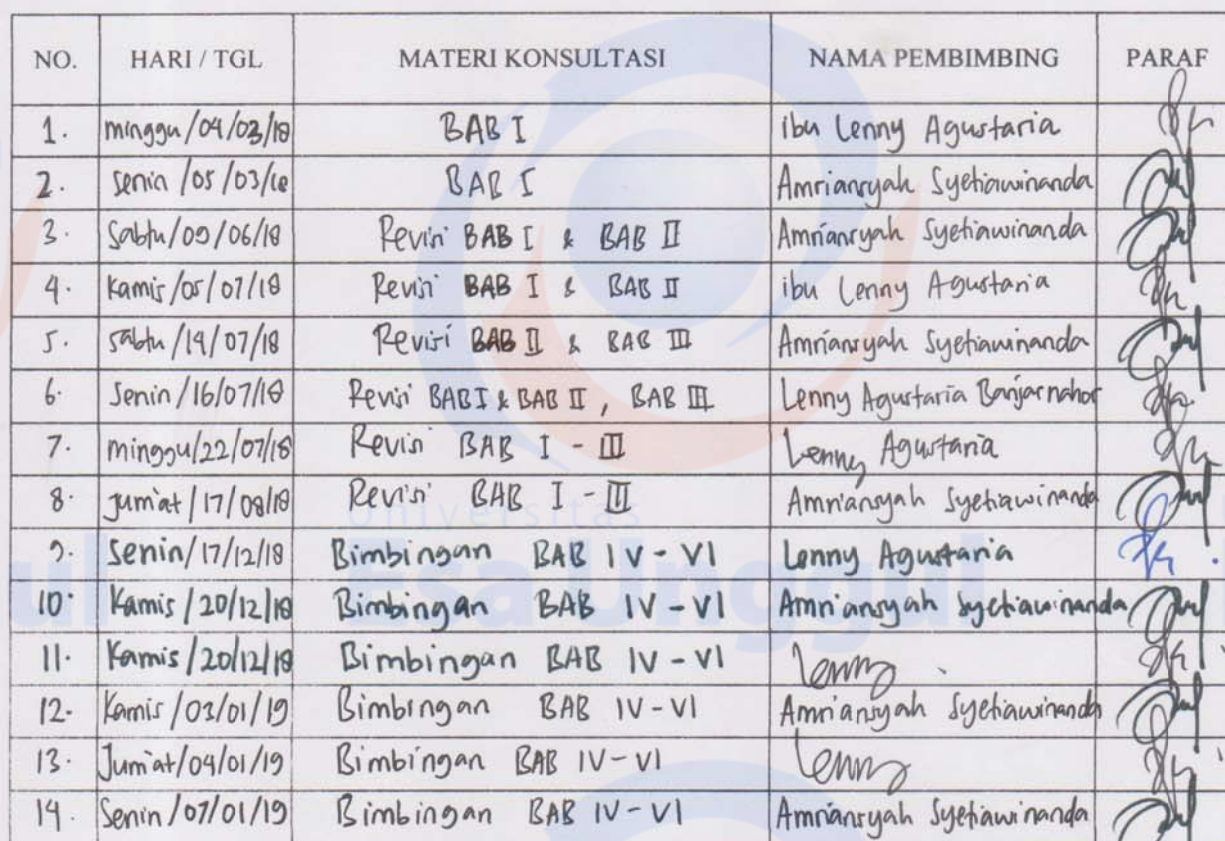 NO. HARI / TGL MATERI KONSULTASI NAMA PEMBIMBING PARAF
1. minggu/04/03/18 BAB I ibu Lenny Agustaria
2. Senin /05/03/18 BAB I Amriansyah Syetiawinanda
3. Sabtu/09/06/18 Revisi BAB I & BAB II Amriansyah Syetiawinanda
4. Kamis/05/07/18 Revisi BAB I & BAB II ibu Lenny Agustaria
5. Sabtu/14/07/18 Revisi BAB II & BAB III Amriansyah Syetiawinanda
6. Senin/16/07/18 Revisi BAB I & BAB II, BAB III Lenny Agustaria Banjarnahor
7. minggu/22/07/18 Revisi BAB I - III Lenny Agustaria
8. Jum'at/17/08/18 Revisi BAB I - III Amriansyah Syetiawinanda
Universitas
9. Senin/17/12/18 Bimbingan BAB IV - VI Lenny Agustaria
Esa Unggul
10. Kamis/20/12/18 Bimbingan BAB IV - VI Amriansyah Syetiawinanda
11. Kamis/20/12/18 Bimbingan BAB IV - VI Lenny
12. Kamis/03/01/19 Bimbingan BAB IV - VI Amriansyah Syetiawinanda
13. Jum'at/04/01/19 Bimbingan BAB IV - VI Lenny
14. Senin/07/01/19 Bimbingan BAB IV - VI Amriansyah Syetiawinanda